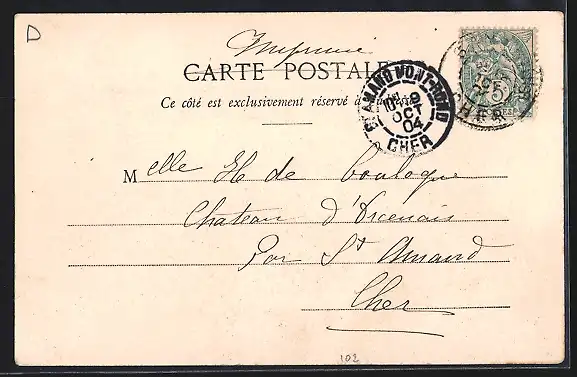 D
Imprimé
CARTE POSTALE
Ce côté est exclusivement réservé à l'adresse
ST AMAND MONT-ROND
9
OCT
04
CHER
5
CHER
Melle H de Boulogne
Chateau d'Orcenais
Par St Amand
Cher
102